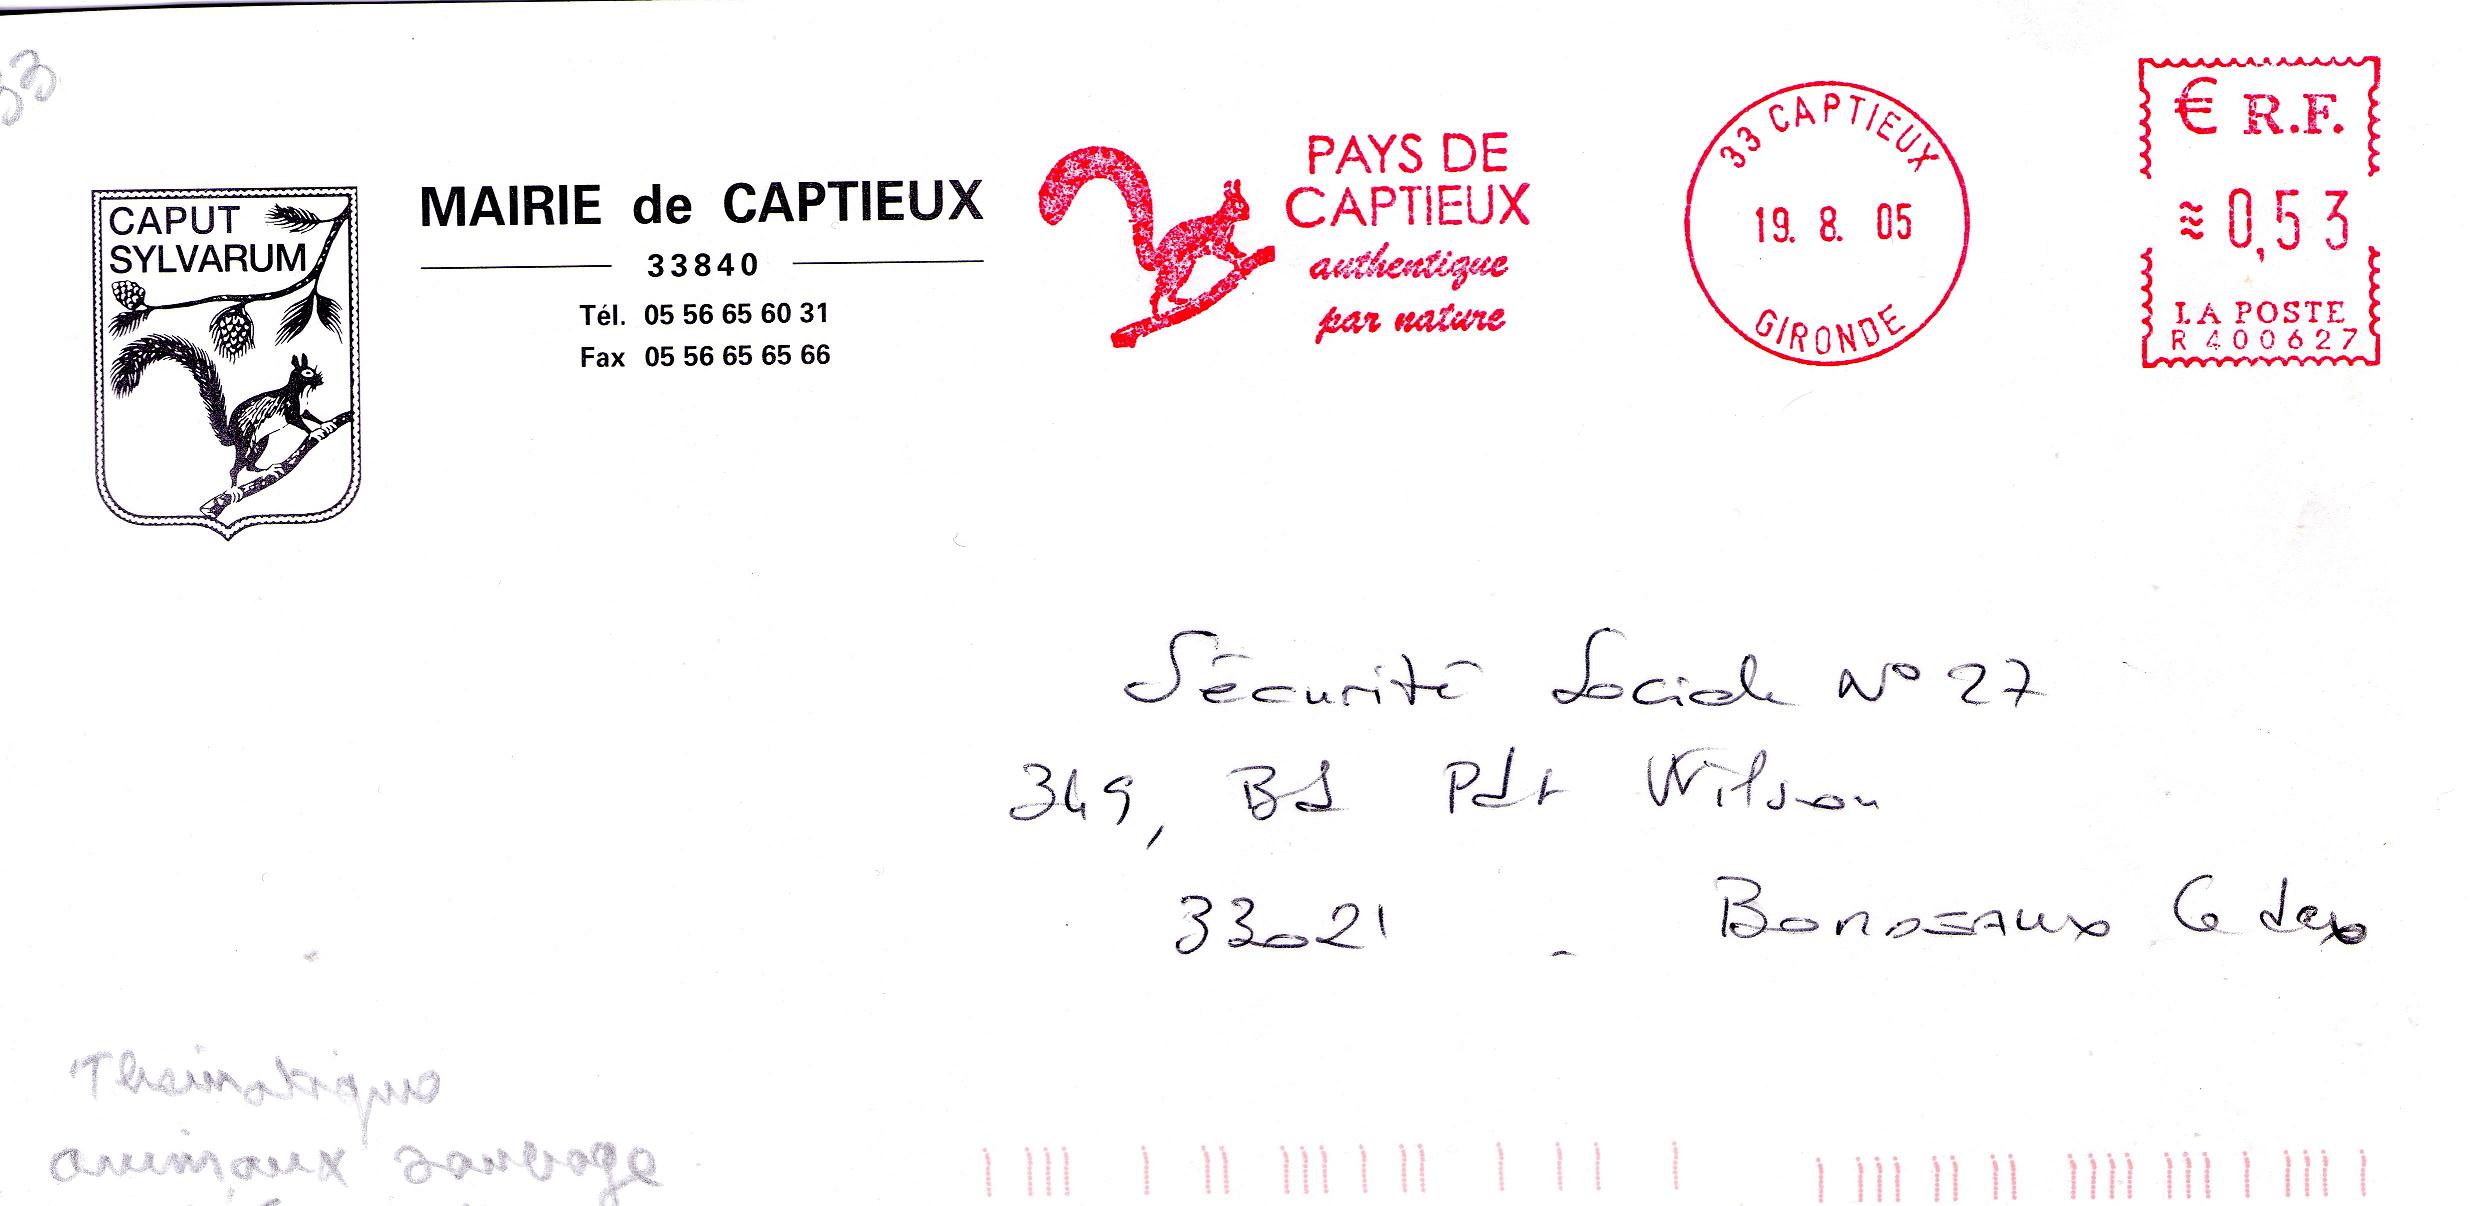 33
CAPUT
SYLVARUM
MAIRIE de CAPTIEUX
33840
Tél. 05 56 65 60 31
Fax 05 56 65 65 66
PAYS DE
CAPTIEUX
authentique
par nature
33 CAPTIEUX
19. 8. 05
GIRONDE
€ R.F.
0,53
LA POSTE
R 400627
Sécurité Sociale N° 27
349, Bd Pdt Wilson
33021 - BORDEAUX Cedex
Thématique
animaux sauvage